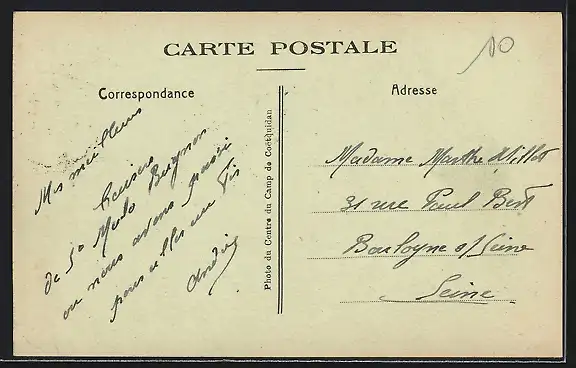 CARTE POSTALE
10
Correspondance
Adresse
Mes meilleurs
baisers
de St Malo
où nous avons passé
André
Photo du Centre du Camp de Coëtquidan
Madame Marthe Millot
31 rue Paul Bert
Boulogne s/ Seine
Seine